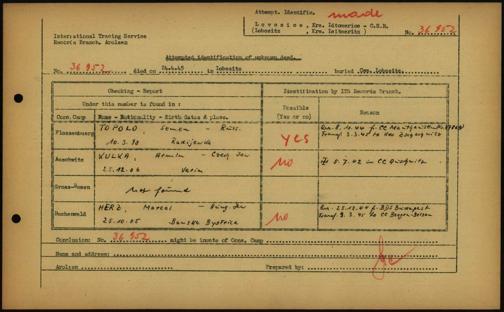 Attempt. Identific. made
Lovosice, Krs. Litomerice - C.S.R.
(Lobositz , Krs. Leitmeritz) No. 36 952
International Tracing Service
Records Branch, Arolsen
Attempted identification of unknown dead.
No. 36 952 died on 24.4.45 in Lobositz buried Cem. Lobositz.
Checking - Report
Identification by ITS Records Branch.
Under this number is found in:
Possible (Yes or no)
Reason
Conc. Camp Name - Nationality - Birth dates & place.
Flossenburg TOPOLO, Semen - Russ.
10.3.98
yes
Auschwitz KULKA, Armin - Czech Jew
25.12.06
no
5.7.42 in CC Auschwitz
Gross-Rosen not found
Buchenwald HERZ, Marcel - Hung. Jew
25.10.05 Banska Bystrica
no
Arr. 25.12.44 f. BdS Budapest
Transf. 3.3.45 to CC Bergen-Belsen
Conclusion: No. 36 952 might be inmate of Conc. Camp
Name and address:
Arolsen Prepared by: